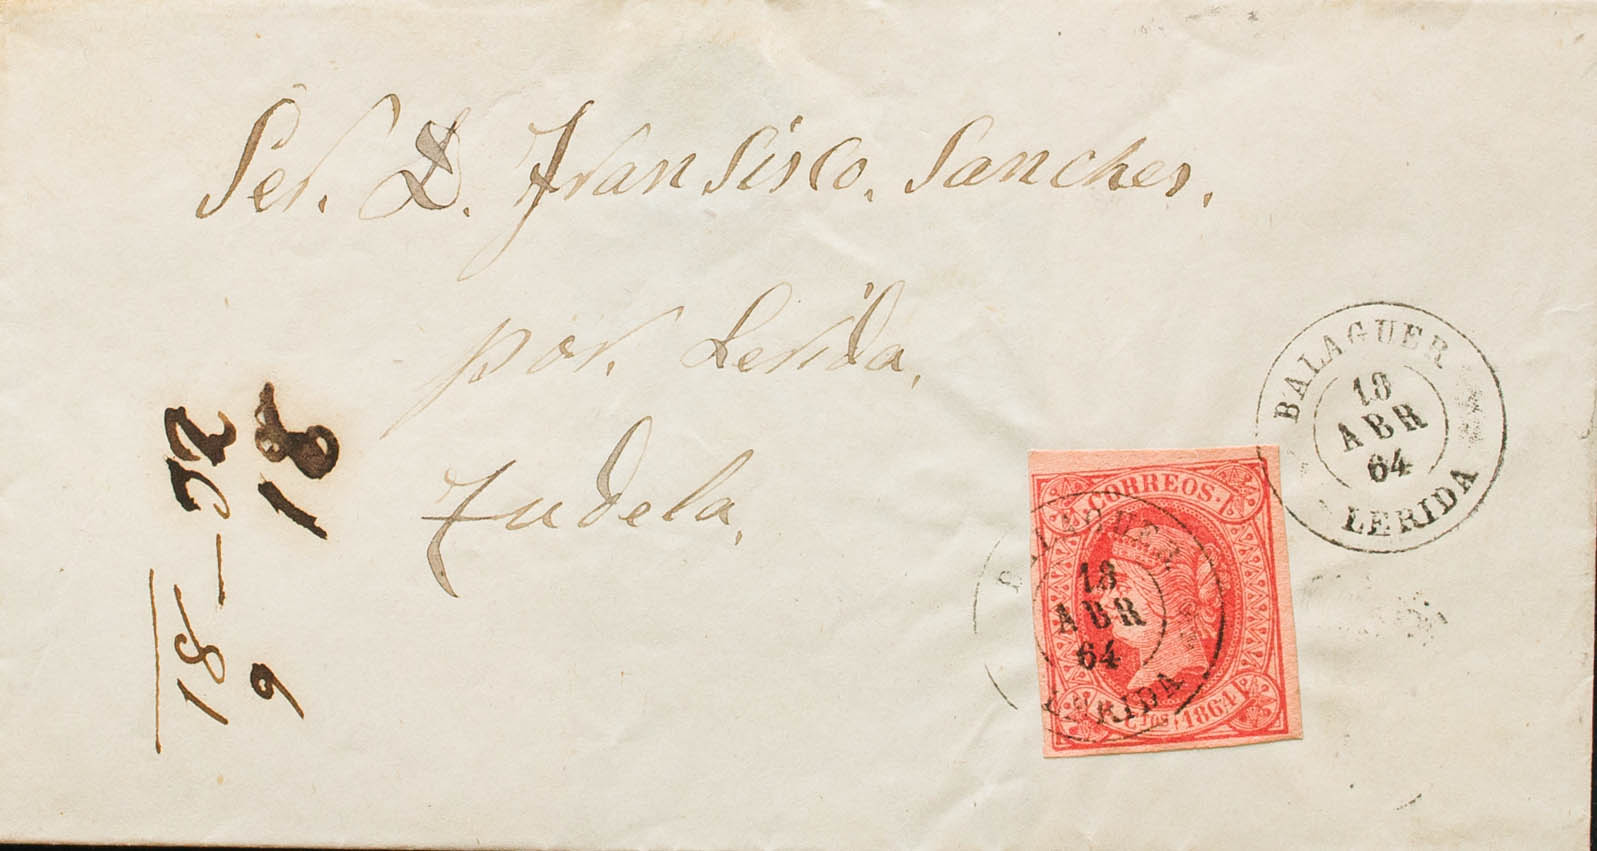 Ser. D. Fransisco. Sanches.
por. Lerida.
Tudela.
BALAGUER
18
ABR
64
LERIDA
CORREOS.
BALAGUER
18
ABR
64
LERIDA
Ctos 1864
18
18
9